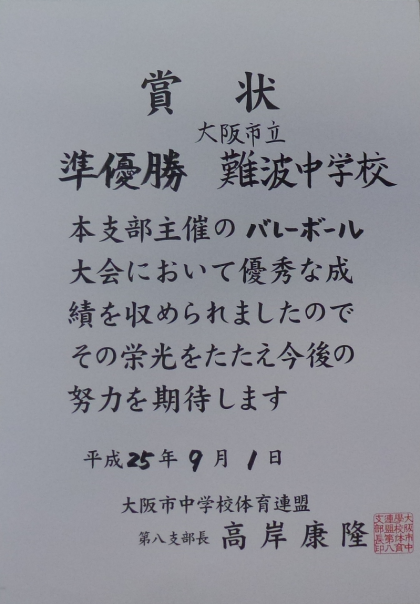 賞 状
大阪市立
準優勝 難波中学校
本支部主催のバレーボール
大会において優秀な成
績を収められましたので
その栄光をたたえ今後の
努力を期待します
平成25年9月1日
大阪市中学校体育連盟
第八支部長 高岸康隆
大阪市中
學校体育
連盟第八
支部長印